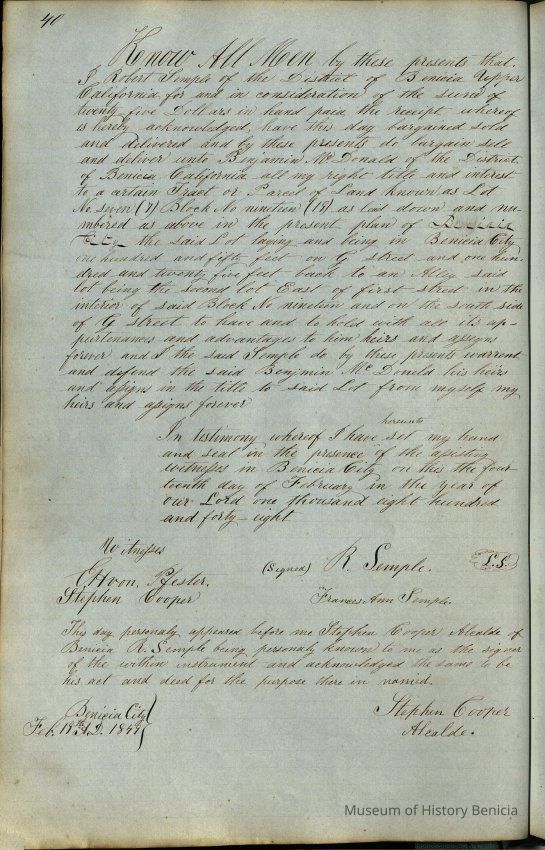 40
Know All Men by these presents that
I Robert Semple of the District of Benicia Upper
California for and in consideration of the sum of
twenty five Dollars in hand paid the receipt whereof
is hereby acknowledged, have this day bargained sold
and delivered and by these presents do bargain sell
and deliver unto Benjamin McDonald of the District
of Benicia California all my right title and interest
to a certain Tract or Parcel of Land known as Lot
No. seven (7) Block No nineteen (19) as laid down and nu-
mbered as above in the present plan of Benicia
City the said Lot laying and being in Benicia City
one hundred and fifty feet on G street and one hun-
dred and twenty five feet back to an Alley said
lot being the second lot East of first street in the
interior of said Block No nineteen and on the south side
of G street to have and to hold with all its ap-
purtenances and advantages to him heirs and assigns
forever and I the said Semple do by these presents warrent
and defend the said Benjmin McDonald his heirs
and assigns in the title to said Lot from myself my
heirs and assigns forever
hereunto
In testimony whereof I have set my hand
and seal in the presence of the assisting
witnesses in Benicia City on this the four
teenth day of February in the year of
our Lord one thousand eight hundred
and forty-eight
Witnesses
(Signed) R. Semple. L.S.
E. H. von Pfister.
Stephen Cooper Frances Ann Semple.
This day personaly appeared before me Stephen Cooper Alcalde of
Benicia R. Semple being personaly known to me as the signor
of the within instrument and acknowledged the same to be
his act and deed for the purpose there in named.
Benicia City Stephen Cooper
Feb. 19th A.D. 1848 Alcalde.
Museum of History Benicia